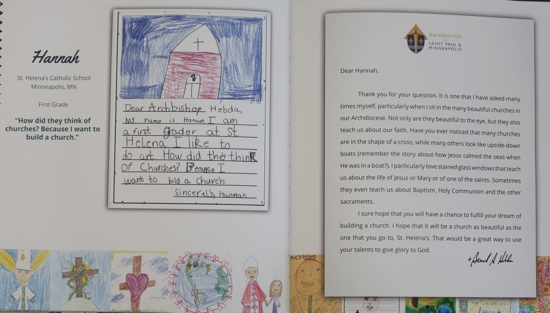 Hannah
St. Helena's Catholic School
Minneapolis, MN
First Grade
"How did they think of
churches? Because I want to
build a church."
Dear Archbishop Hebda,
My name is Hannah I am
a first grader at St
Helena I like to
do art. How did the think
of Churches? I
want to bild a church
Sincerely, Hannah
ARCHDIOCESE
SAINT PAUL &
MINNEAPOLIS
Dear Hannah,
Thank you for your question. It is one that I have asked many
times myself, particularly when I sit in the many beautiful churches in
our Archdiocese. Not only are they beautiful to the eye, but they also
teach us about our faith. Have you ever noticed that many churches
are in the shape of a cross, while many others look like upside-down
boats (remember the story about how Jesus calmed the seas when
He was in a boat?). I particularly love stained glass windows that teach
us about the life of Jesus or Mary or of one of the saints. Sometimes
they even teach us about Baptism, Holy Communion and the other
sacraments.
I sure hope that you will have a chance to fulfill your dream of
building a church. I hope that it will be a church as beautiful as the
one that you go to, St. Helena's. That would be a great way to use
your talents to give glory to God.